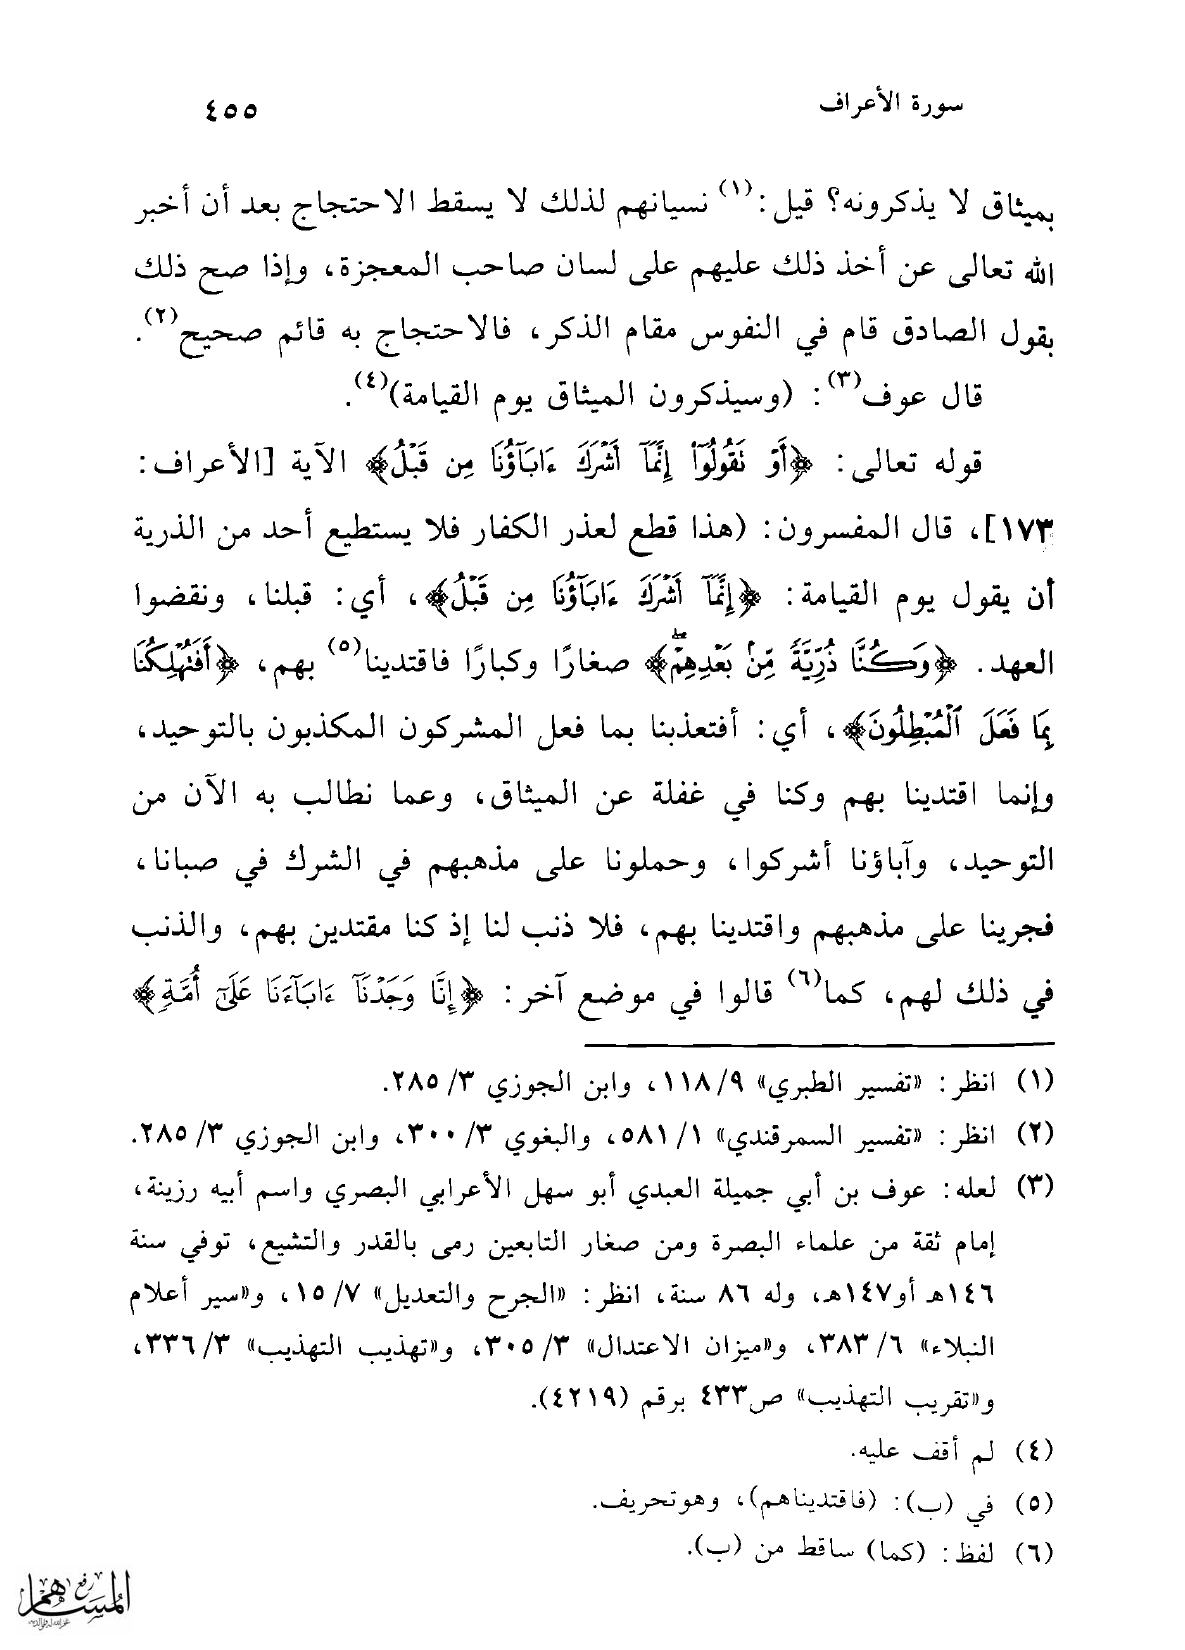 سورة الأعراف
٤٥٥
بميثاق لا يذكرونه؟ قيل:(١) نسيانهم لذلك لا يسقط الاحتجاج بعد أن أخبر
الله تعالى عن أخذ ذلك عليهم على لسان صاحب المعجزة، وإذا صح ذلك
بقول الصادق قام في النفوس مقام الذكر، فالاحتجاج به قائم صحيح(٢).
قال عوف(٣): (وسيذكرون الميثاق يوم القيامة)(٤).
قوله تعالى: ﴿أَوۡ تَقُولُوٓاْ إِنَّمَآ أَشۡرَكَ ءَابَآؤُنَا مِن قَبۡلُ﴾ الآية [الأعراف:
١٧٣]، قال المفسرون: (هذا قطع لعذر الكفار فلا يستطيع أحد من الذرية
أن يقول يوم القيامة: ﴿إِنَّمَآ أَشۡرَكَ ءَابَآؤُنَا مِن قَبۡلُ﴾، أي: قبلنا، ونقضوا
العهد. ﴿وَكُنَّا ذُرِّيَّةٗ مِّنۢ بَعۡدِهِمۡۖ﴾ صغارًا وكبارًا فاقتدينا(٥) بهم، ﴿أَفَتُهۡلِكُنَا
بِمَا فَعَلَ ٱلۡمُبۡطِلُونَ﴾، أي: أفتعذبنا بما فعل المشركون المكذبون بالتوحيد،
وإنما اقتدينا بهم وكنا في غفلة عن الميثاق، وعما نطالب به الآن من
التوحيد، وآباؤنا أشركوا، وحملونا على مذهبهم في الشرك في صبانا،
فجرينا على مذهبهم واقتدينا بهم، فلا ذنب لنا إذ كنا مقتدين بهم، والذنب
في ذلك لهم، كما(٦) قالوا في موضع آخر: ﴿إِنَّا وَجَدۡنَآ ءَابَآءَنَا عَلَىٰٓ أُمَّةٖ﴾
(١) انظر: «تفسير الطبري» ٩/ ١١٨، وابن الجوزي ٣/ ٢٨٥.
(٢) انظر: «تفسير السمرقندي» ١/ ٥٨١، والبغوي ٣/ ٣٠٠، وابن الجوزي ٣/ ٢٨٥.
(٣) لعله: عوف بن أبي جميلة العبدي أبو سهل الأعرابي البصري واسم أبيه رزينة،
إمام ثقة من علماء البصرة ومن صغار التابعين رمى بالقدر والتشيع، توفي سنة
١٤٦هـ أو١٤٧هـ، وله ٨٦ سنة، انظر: «الجرح والتعديل» ٧/ ١٥، و«سير أعلام
النبلاء» ٦/ ٣٨٣، و«ميزان الاعتدال» ٣/ ٣٠٥، و«تهذيب التهذيب» ٣/ ٣٣٦،
و«تقريب التهذيب» ص٤٣٣ برقم (٤٢١٩).
(٤) لم أقف عليه.
(٥) في (ب): (فاقتديناهم)، وهوتحريف.
(٦) لفظ: (كما) ساقط من (ب).